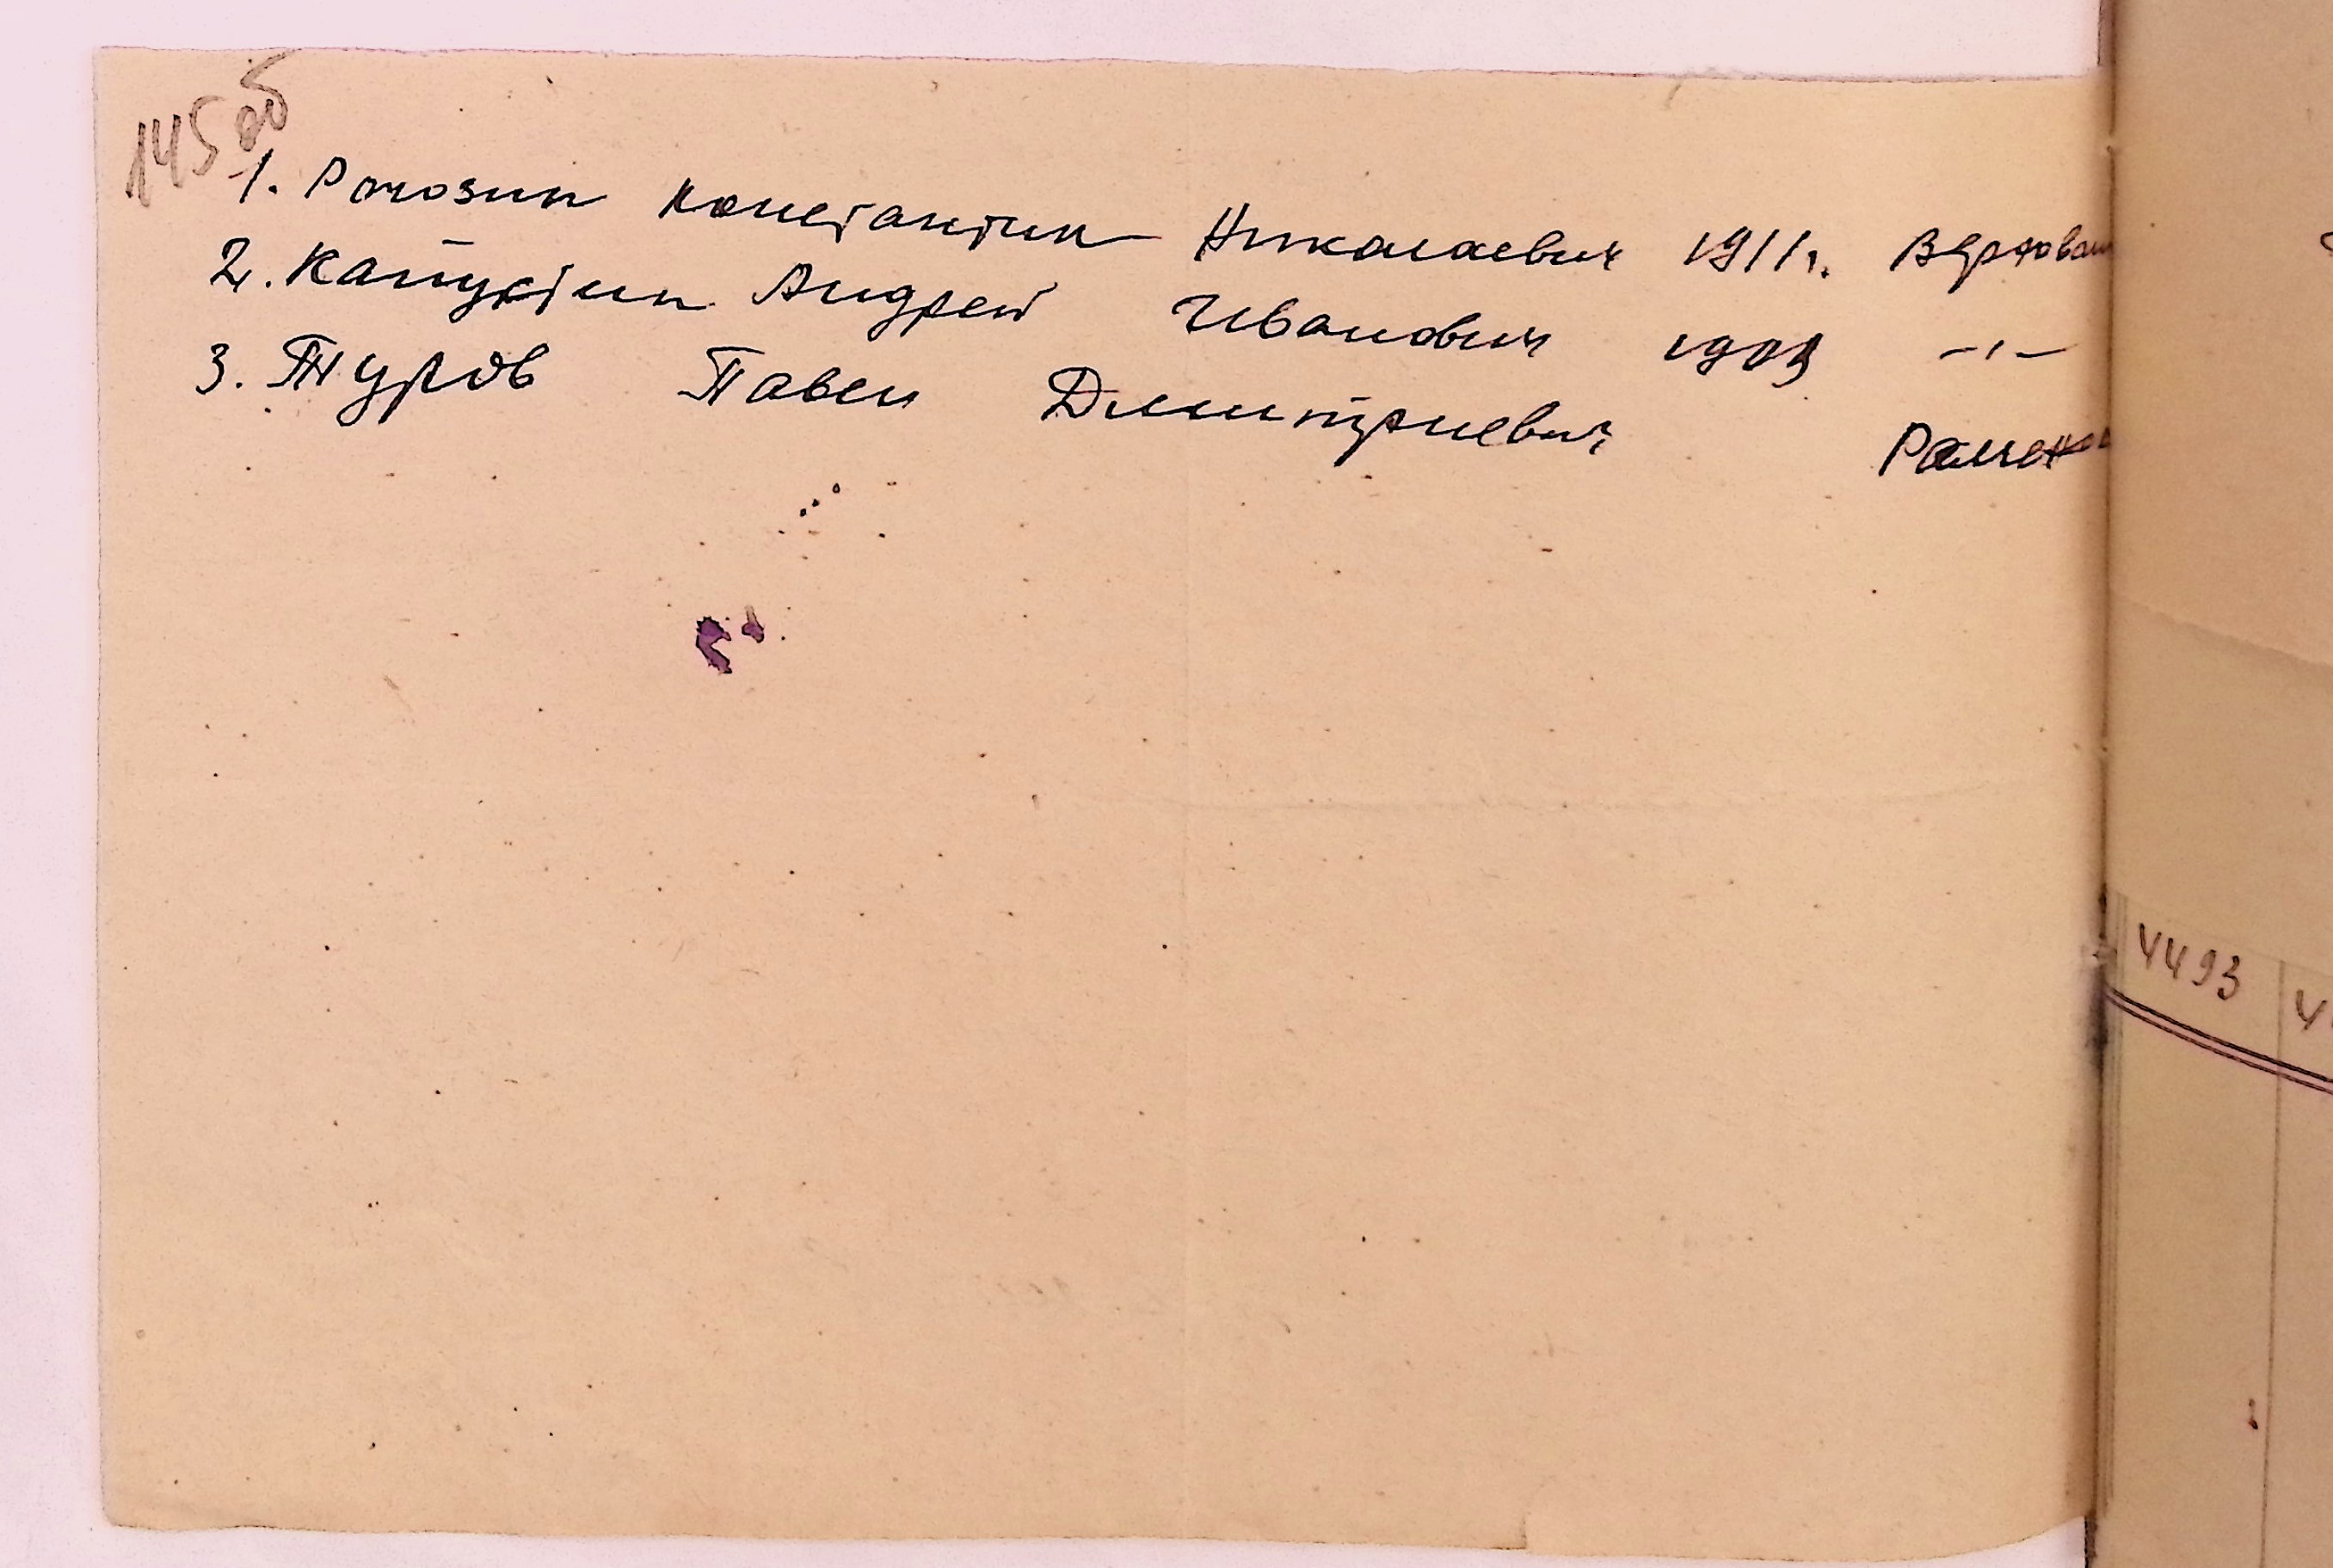 145 об
1. Рогозин Константин Николаевич 1911г. Верховаж
2. Капустин Андрей Иванович 1903 -"-
3. Туров Павел Дмитриевич Рамен
4493